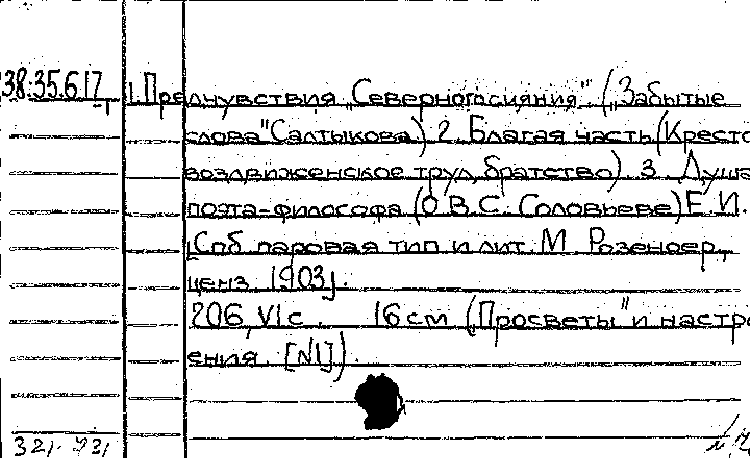 38.35.617 1. Преднувствия „Северногосияния" („Забытые
слова" Салтыкова) 2. Благая часть (Кресто
воздвиженское труд. братство) 3. Душа
поэта-философа (О В.С. Соловьеве) Е.И.
[Спб паровая тип и лит. М Розеноер,
ценз. 1903].
206, VI с. 16 см („Просветы" и настро
ения. [№1]).